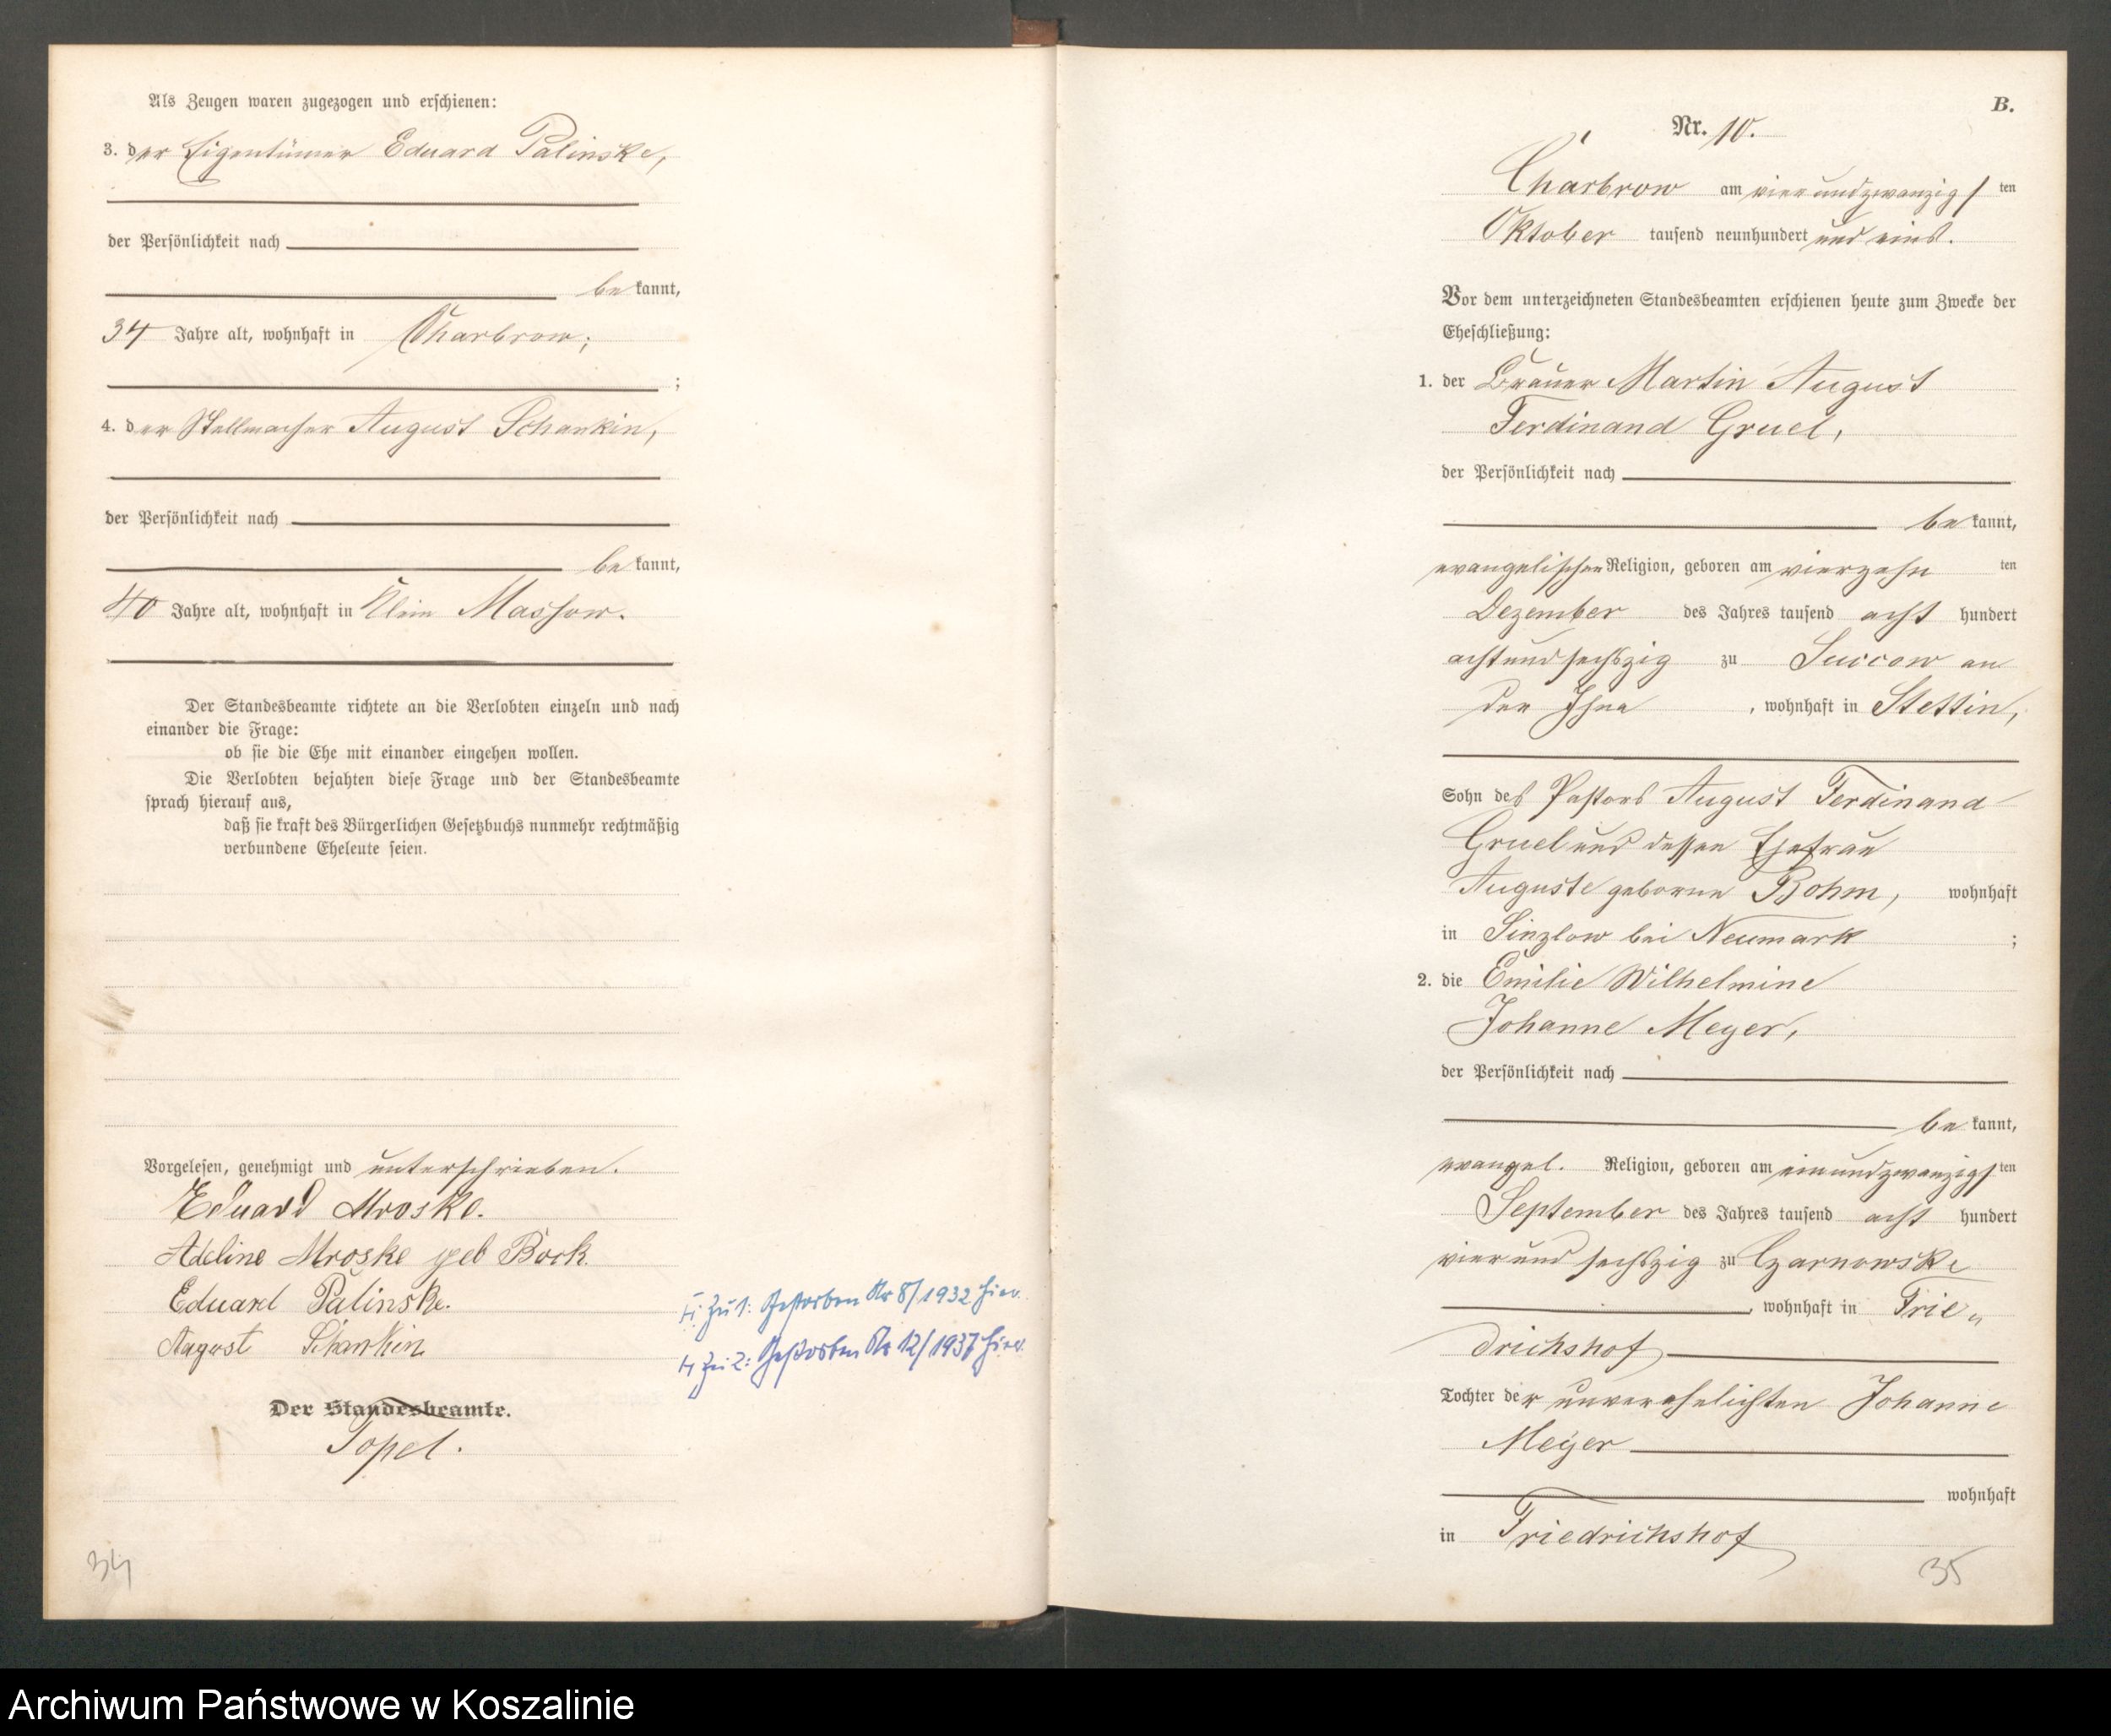 Als Zeugen waren zugezogen und erschienen:
3. der Eigentümer Eduard Palinske,
der Persönlichkeit nach
be kannt,
34 Jahre alt, wohnhaft in Charbrow;
;
4. der Stellmacher August Schankin,
der Persönlichkeit nach
be kannt,
40 Jahre alt, wohnhaft in Klein Massow.
Der Standesbeamte richtete an die Verlobten einzeln und nach
einander die Frage:
ob sie die Ehe mit einander eingehen wollen.
Die Verlobten bejahten diese Frage und der Standesbeamte
sprach hierauf aus,
daß sie kraft des Bürgerlichen Gesetzbuchs nunmehr rechtmäßig
verbundene Eheleute seien.
Vorgelesen, genehmigt und unterschrieben.
Eduard Mroske.
Adeline Mroske geb Bock.
Eduard Palinske.
August Schankin
Der Standesbeamte.
Topel.
zu 1: Gestorben Nr 8/1932 hier.
zu 2: Gestorben Nr 12/1937 hier.
34
B.
Nr. 10.
Charbrow am vierundzwanzigsten
Oktober tausend neunhundert und eins.
Vor dem unterzeichneten Standesbeamten erschienen heute zum Zwecke der
Eheschließung:
1. der Brauer Martin August
Ferdinand Gruel,
der Persönlichkeit nach
be kannt,
evangelischen Religion, geboren am vierzehn ten
Dezember des Jahres tausend acht hundert
achtundsechszig zu Succow an
der Ihna, wohnhaft in Stettin,
Sohn des Pastors August Ferdinand
Gruel und dessen Ehefrau
Auguste geborne Bohm, wohnhaft
in Sinzlow bei Neumark ;
2. die Emilie Wilhelmine
Johanne Meyer,
der Persönlichkeit nach
be kannt,
evangel. Religion, geboren am einundzwanzigsten
September des Jahres tausend acht hundert
vierundsechszig zu Czarnowske
, wohnhaft in Frie„
drichshof
Tochter der unverehelichten Johanne
Meyer
wohnhaft
in Friedrichshof
35
Archiwum Państwowe w Koszalinie